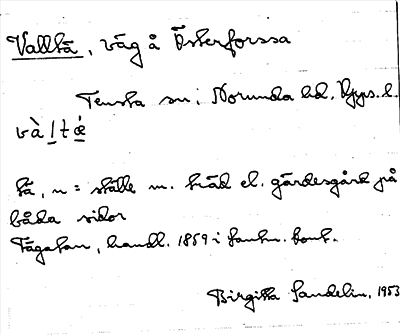 Valltä, väg å Österforssa
Tensta sn; Norunda hd. Upps. l.
và l t ǽ
tä, n = ställe m. träd el. gärdesgård på
båda sidor
Tägatan, handl. 1859 i lantm. kont.
Birgitta Sandelin, 1953